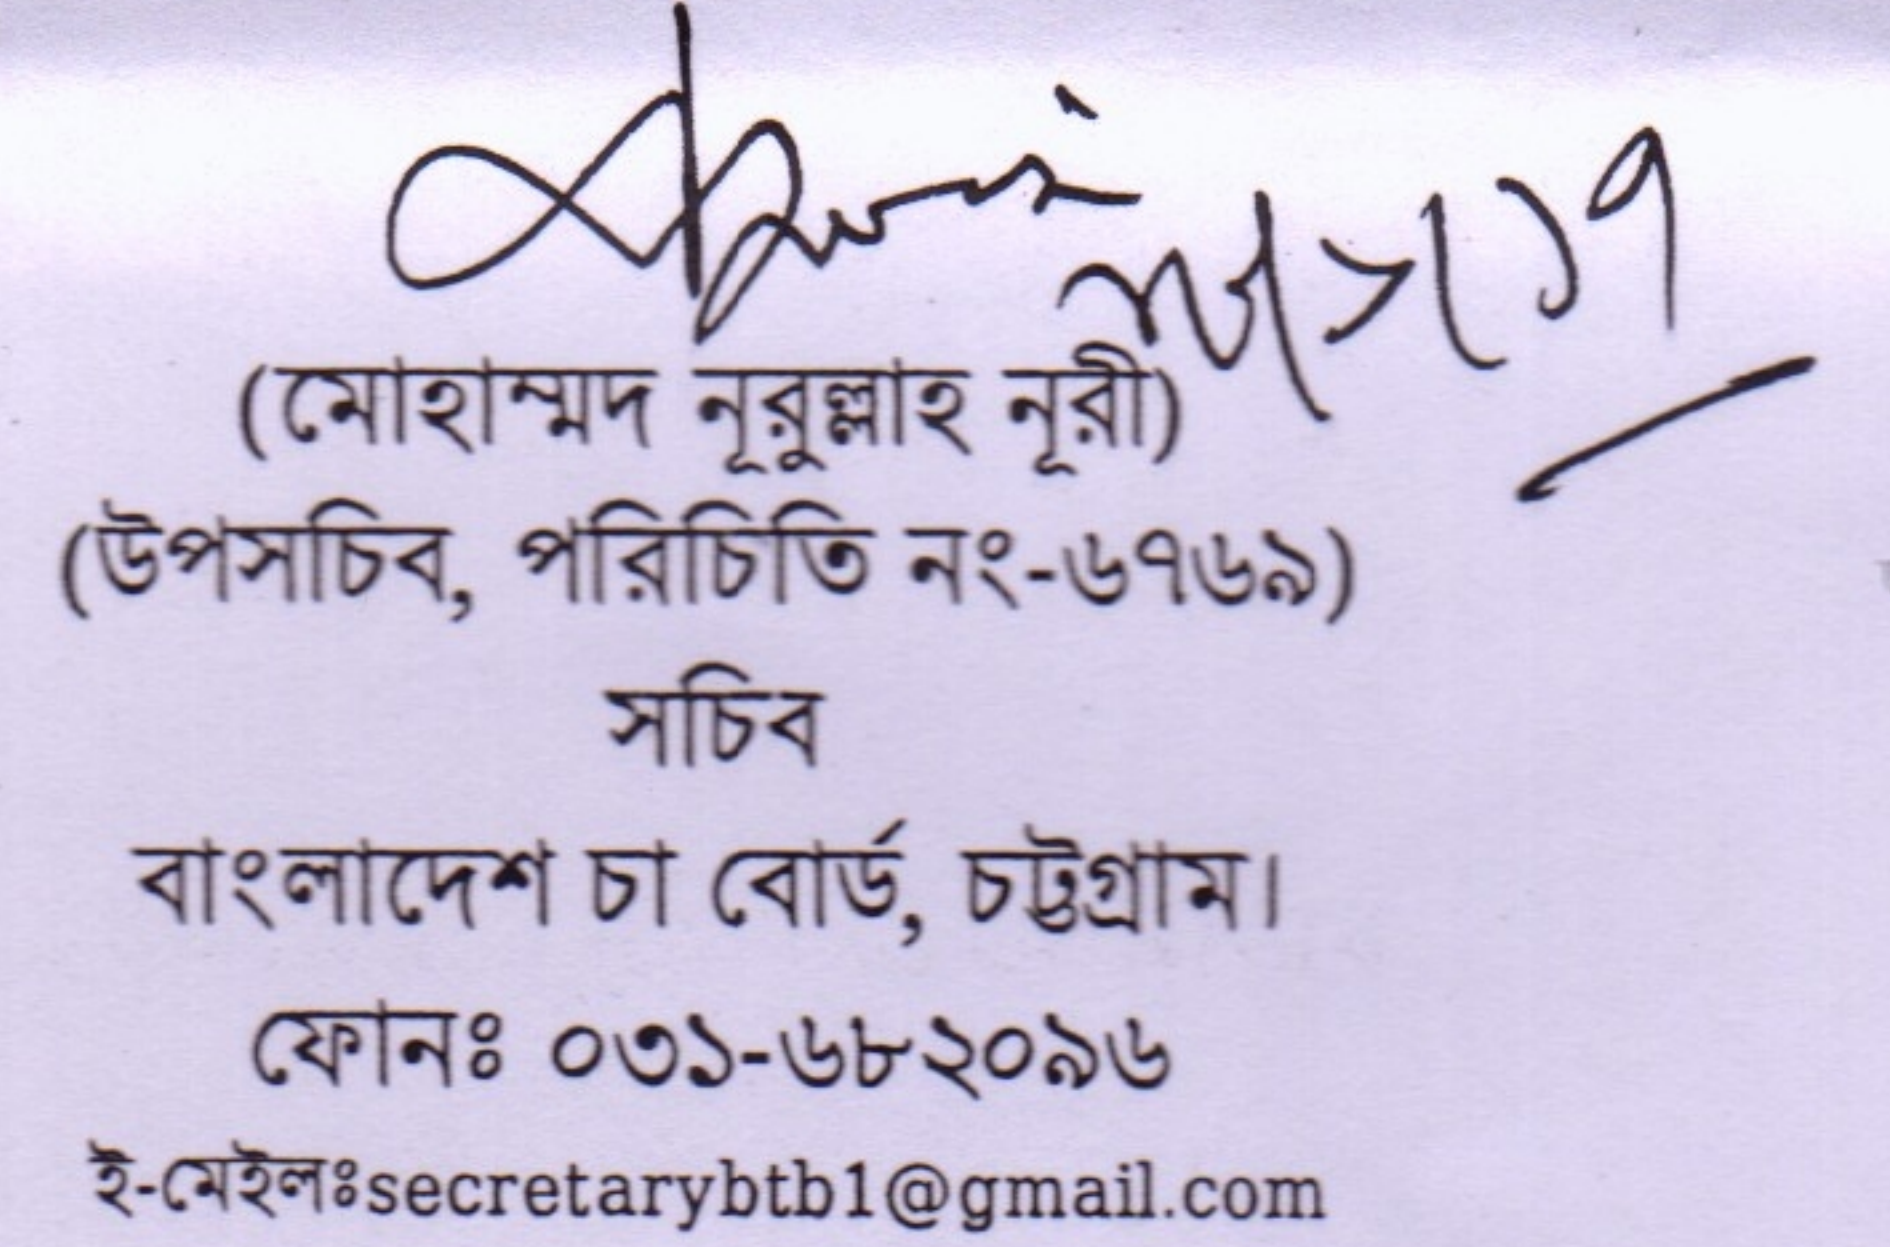 (মোহাম্মদ নূরুল্লাহ নূরী)
(উপসচিব, পরিচিতি নং-৬৭৬৯)
সচিব
বাংলাদেশ চা বোর্ড, চট্টগ্রাম।
ফোনঃ ০৩১-৬৮২০৯৬
ই-মেইলঃsecretarybtb1@gmail.com